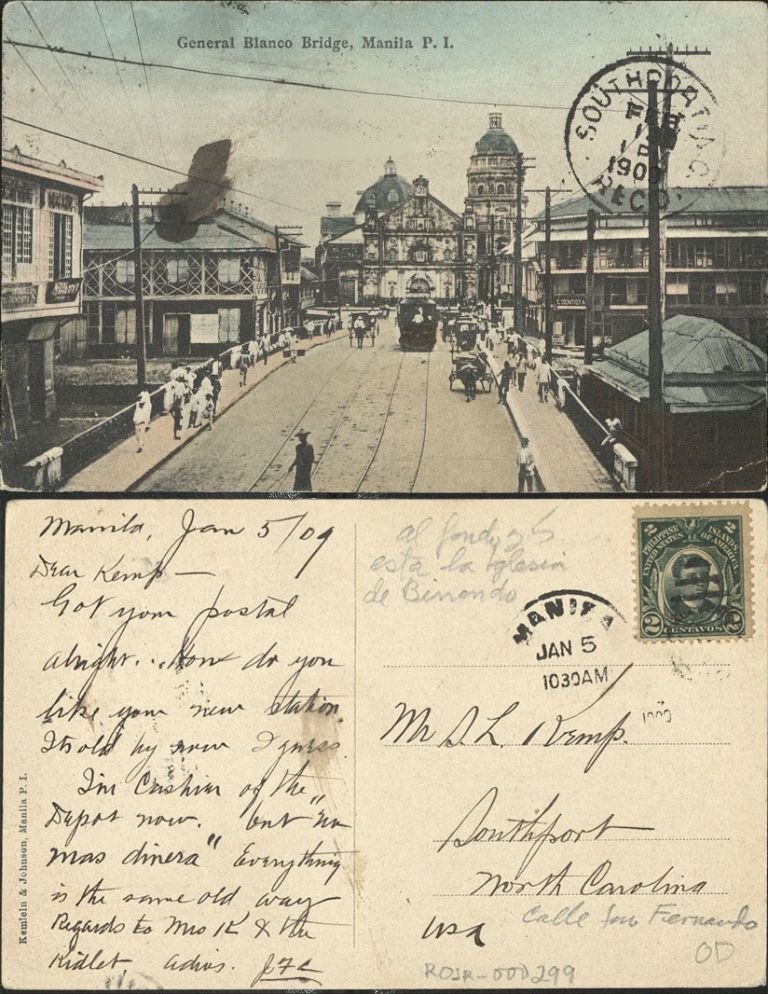 General Blanco Bridge, Manila P. I.
SOUTHPORT, N.C.
FEB
1909
REC'D.
DENTISTA
Manila, Jan 5/09
Dear Kemp—
Got your postal
alright. How do you
like your new station.
Its old by now I guess.
I'm Cashier of the
Depot now. but "no
mas dinera" Everything
is the same old way
Regards to Mrs K & the
Kidlet adios.
Kemlein & Johnson, Manila P. I.
al fondo
esta la Iglesia
de Binondo
MANILA
JAN 5
1030AM
1909
2 PHILIPPINE ISLANDS 2
UNITED STATES OF AMERICA
2 CENTAVOS 2
Mr S. L. Kemp.
Southport
North Carolina
USA
Calle San Fernando
OD
ROJR-OOD299